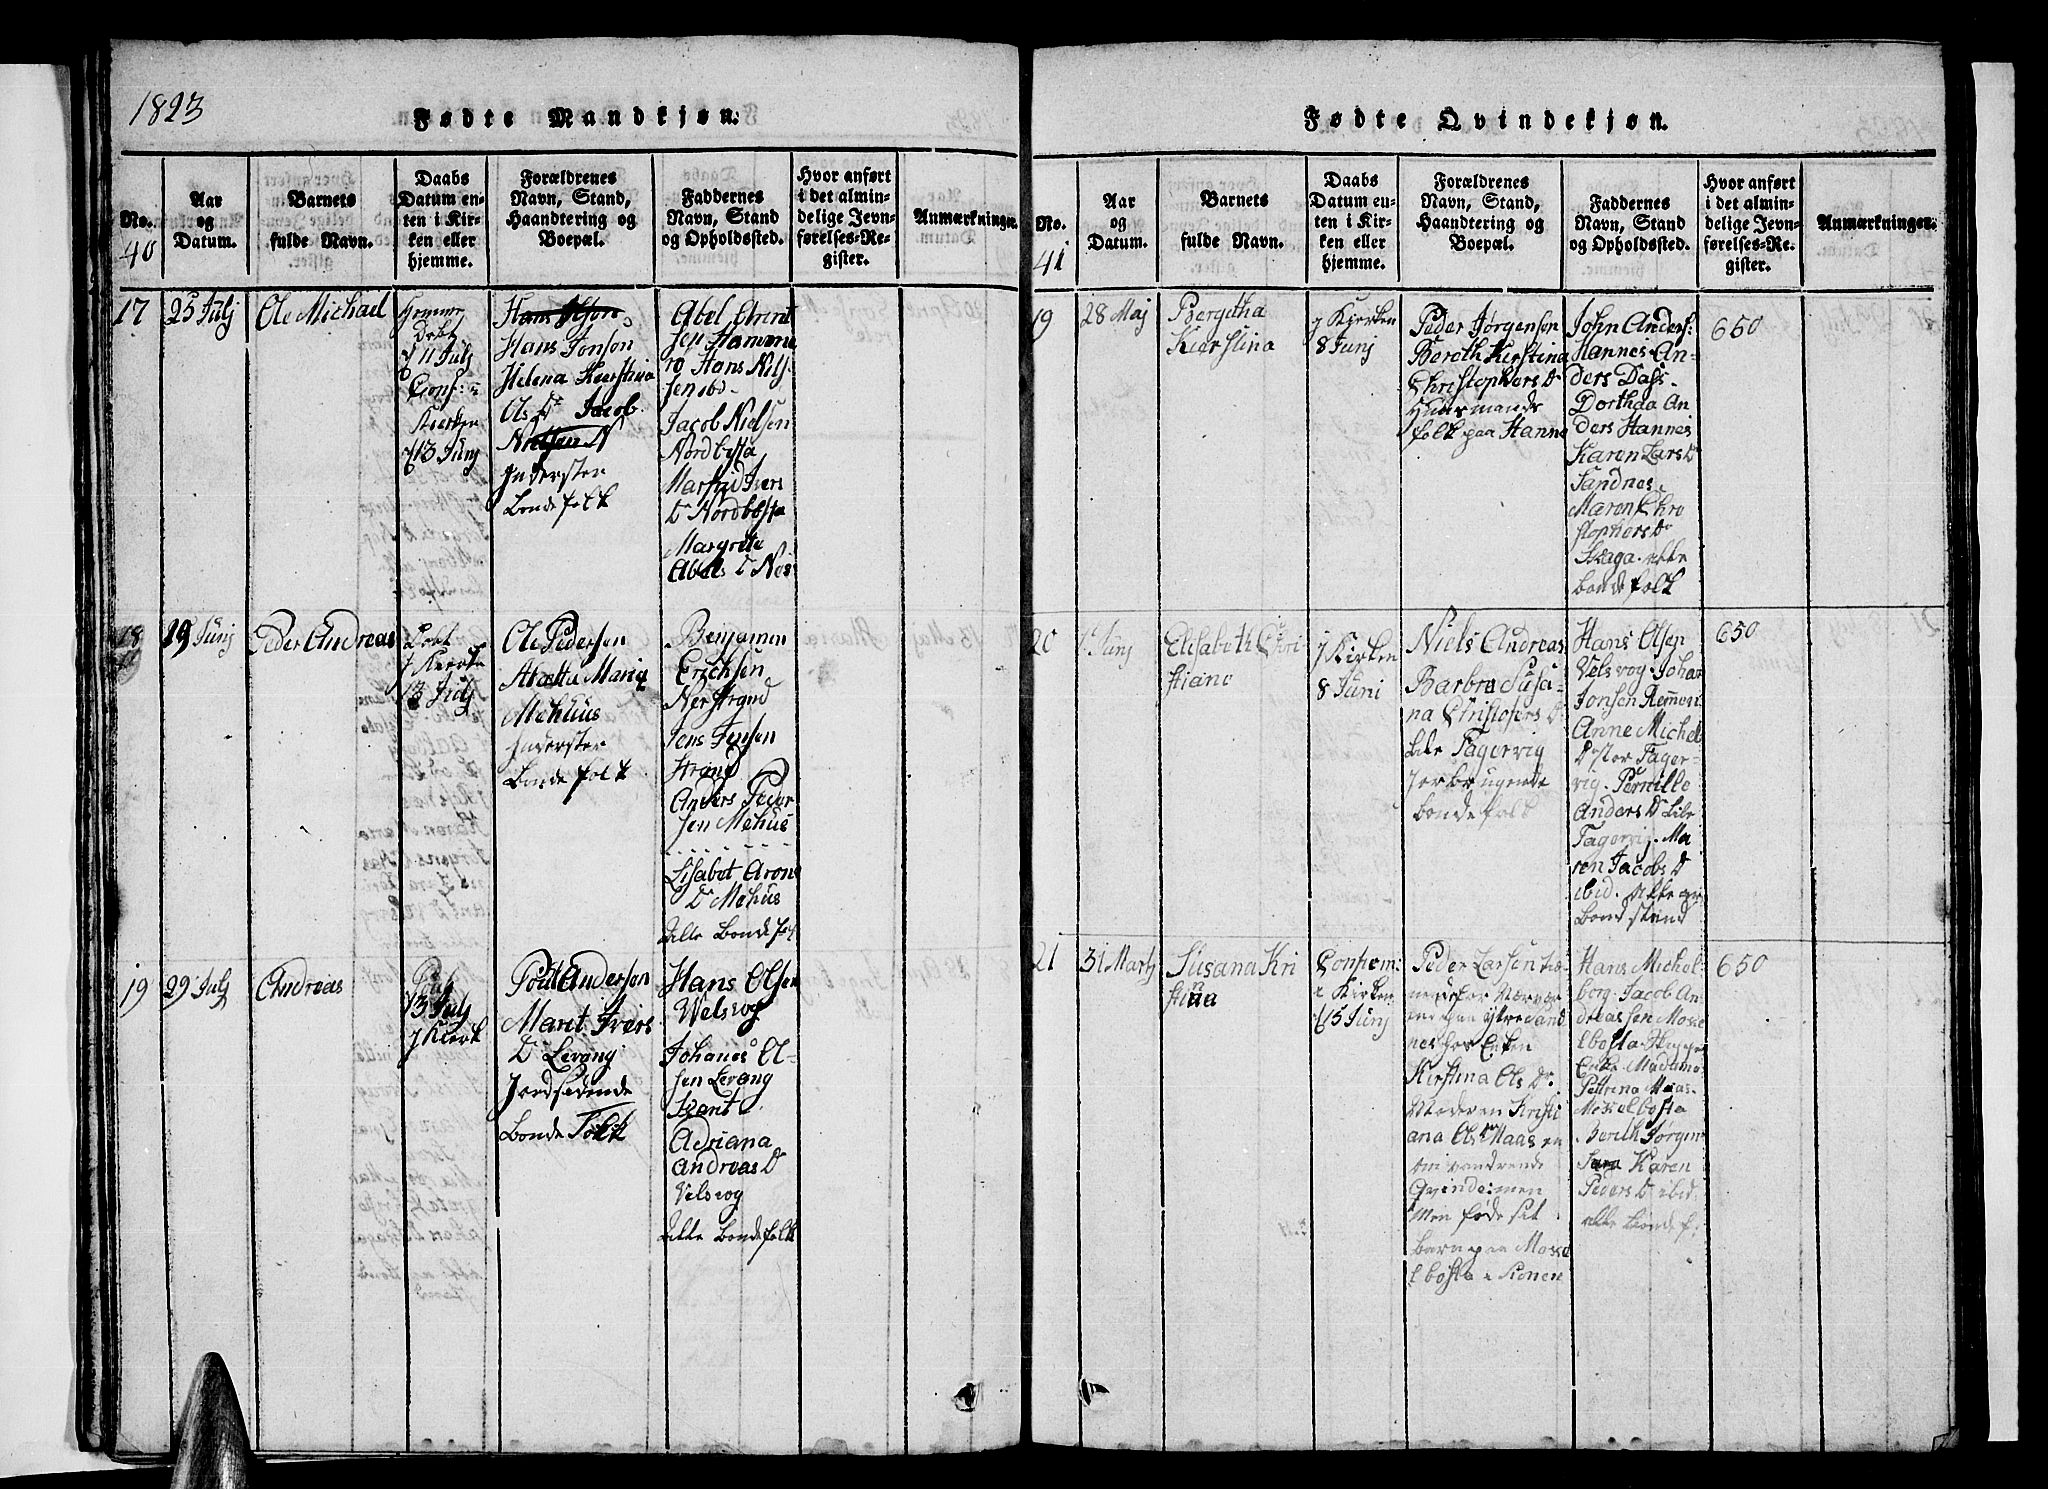 1823
Fødte Mandkjøn.
No.
40
Aar
og
Datum.
Barnets
fulde Navn.
Daabs
Datum en-
ten i Kir-
ken eller
hjemme.
Forældrenes
Navn, Stand,
Haandtering og
Boepæl.
Faddernes
Navn, Stand
og Opholdssted.
Hvor anført
i det almin-
delige Jevn-
førelses-Re-
gister.
Anmærkninger.
17
25 Julj
Ole Michael
Hemme
Døbt
d 11 Julj
Conf: i
Kierken
d 13 Junj
Hans Olson
Hans Jonson
Helena Kierstina
Ols Dr Jacob
Nielsen N
Inderster
Bondefolk
Abel Arent
sen Hamme
ro Hans Nils
sen ibd.
Jacob Nielsen
Nordbøsta
Marfrid Ivers
Dr Nordbøsta
Margrete
Abels D Nes
18
29 Junj
Peder Andreas
Døbt
j Kierke
13 Julj
Ole Pedersen
Maria
Mehuus
Inderster
Bondefolk
Benjamin
Ericksen
Nerstrand
Jens Jensen
Strand
Anders Peder
sen Mehus
Lisabet Arons
Dr Mehus
alle Bondefolk
19
29 Julj
Andreas
13 Julj
j Kierk
Povel Anderson
Marit Ivers
Dr Levang
Jordsidende
Bonde Folk
Hans Olsen
Welsvog
Johanes Ol-
sen Levang
Adriana
Andreas Dr
Velsvog
alle Bondefolk
Fødte Qvindekjøn.
No.
41
Aar
og
Datum.
Barnets
fulde Navn.
Daabs
Datum en-
ten i Kir-
ken eller
hjemme.
Forældrenes
Navn, Stand,
Haandtering og
Boepæl.
Faddernes
Navn, Stand
og Opholdssted.
Hvor anført
i det almin-
delige Jevn-
førelses-Re-
gister.
Anmærkninger.
19
28 Maj
Bergitha
Kierstina
j Kierken
8 Junj
Peder Jørgensen
Bereth Kirstina
Christophers Dr
Huusmands
folk paa Hannes
John Anders:
Hannes An-
ders Dass.
Dorthea An
ders Hannes
Karen Lars Dr
Sandnes
Maren Chri
stophers Dr
Skaga alle
bondefolk
650
20
1 Junj
Elisabeth Chri-
stiane
j Kirken
8 Juni
Niels Andreas
Barbra Susa-
na Christofers Dr
Lile Fagervig
Jorbrugende
bondefolk
Hans Olsen
Velsvog. Johan
Jonsen Remmen
Anne Michels
Doster Fager-
vig. Pernille
Anders Dr Lile
Fagervig. Ma
ren Jacobs D
ibid. alle af
Bond stand
650
21
31 Martj
Susana Kri
stina
Confirm:
i Kirken
d 15 Junj
Peder Larsen
paa ytre Sand
nes hos Enken
Kirstina Ols Dr.
Moderen Kristi
ana Ols Dr Maas en
om vandrende
Qvinde men
føde sit
barn paa
Hans Michel
borg. Jacob An
dreassen
Enke. Madame
Petrina Maas
Berith Jørgen
Karen
Peders D ibid.
alle bonde f.
650